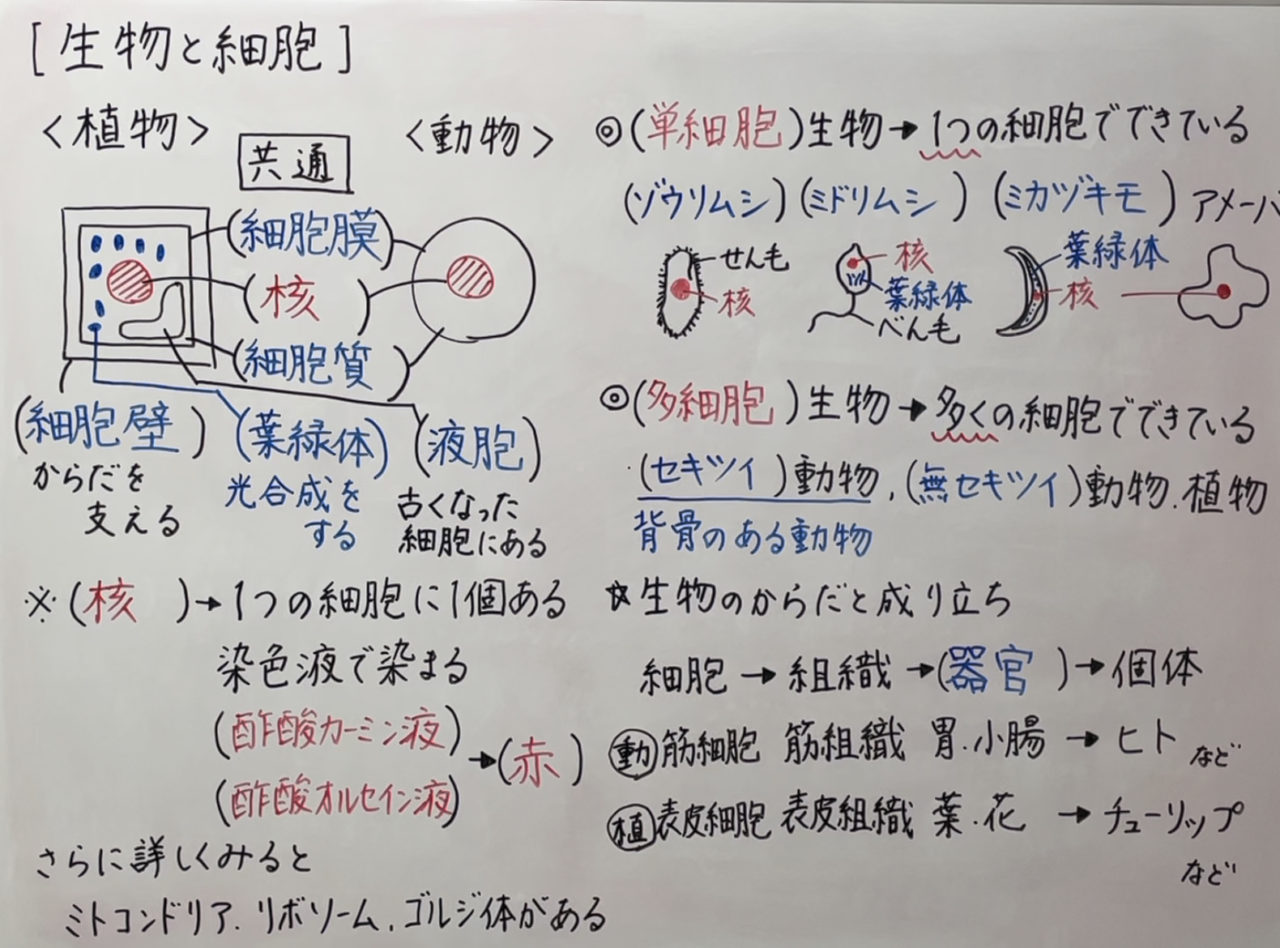 [生物と細胞]
<植物>
共通
<動物>
(細胞膜)
(核)
(細胞質)
(細胞壁)
からだを
支える
(葉緑体)
光合成を
する
(液胞)
古くなった
細胞にある
※(核)→1つの細胞に1個ある
染色液で染まる
(酢酸カーミン液)
(酢酸オルセイン液)
→(赤)
さらに詳しくみると
ミトコンドリア.リボソーム.ゴルジ体がある
◎(単細胞)生物→1つの細胞でできている
(ゾウリムシ)(ミドリムシ)(ミカヅキモ)アメーバ
せん毛
核
核
葉緑体
べん毛
葉緑体
核
◎(多細胞)生物→多くの細胞でできている
・(セキツイ)動物.(無セキツイ)動物.植物
背骨のある動物
☆生物のからだと成り立ち
細胞→組織→(器官)→個体
動 筋細胞 筋組織 胃.小腸→ヒト など
植 表皮細胞 表皮組織 葉.花→チューリップ
など